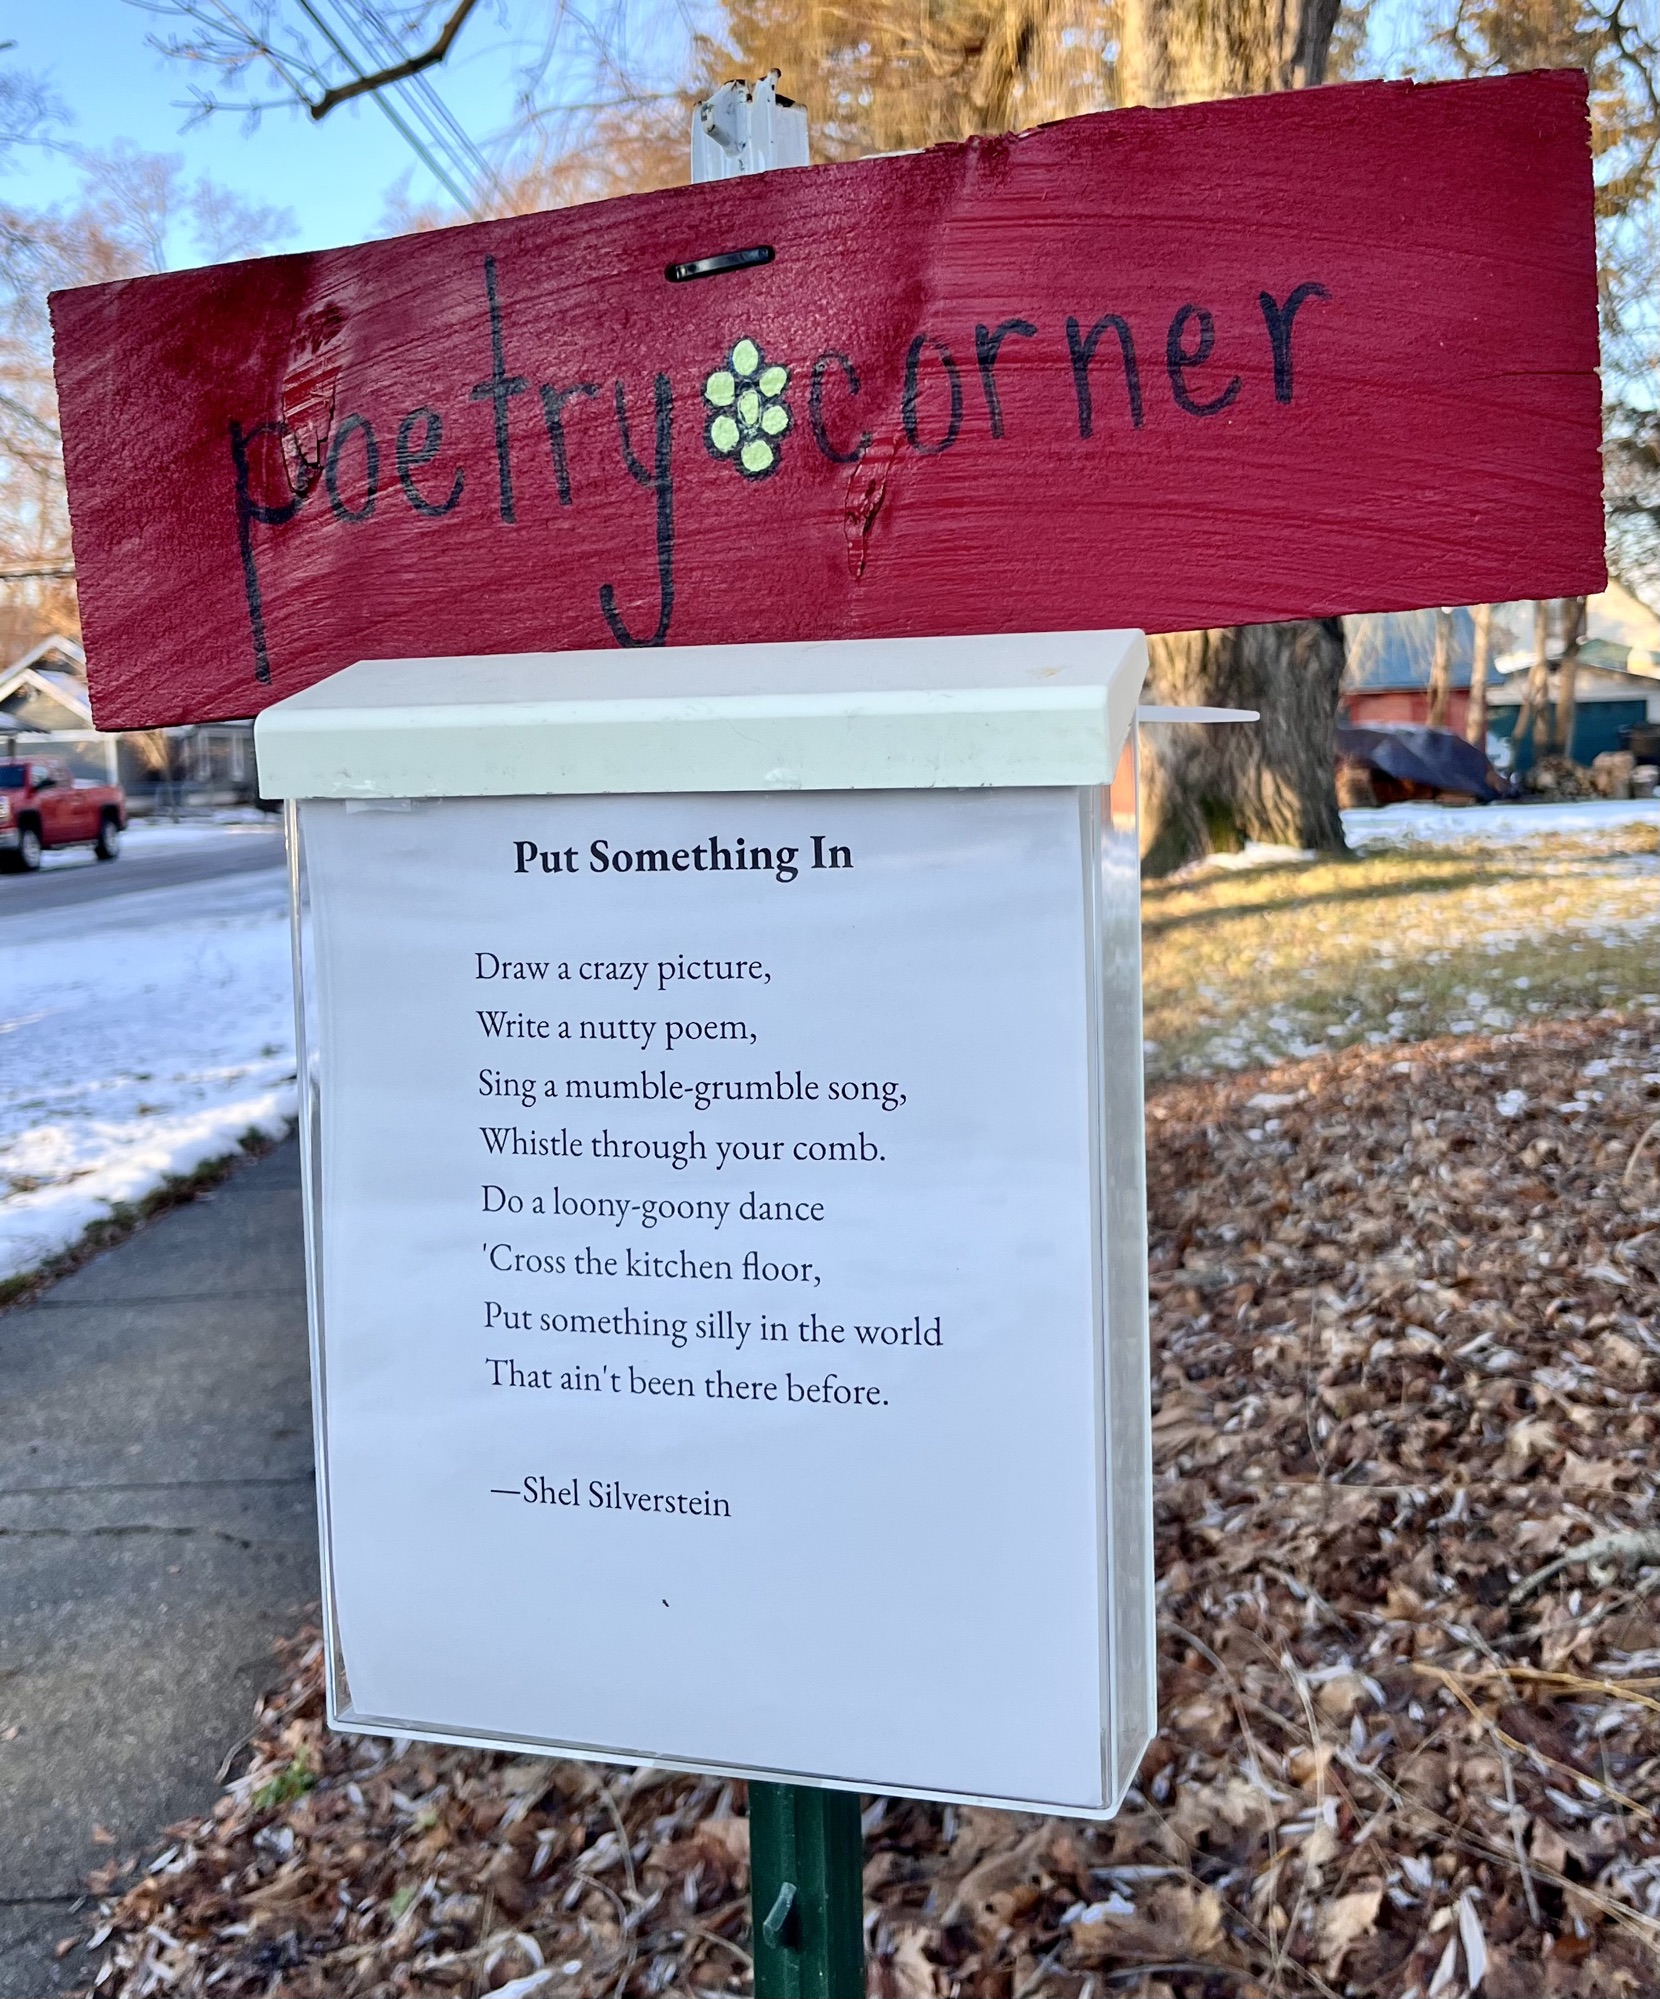 poetry corner
Put Something In
Draw a crazy picture,
Write a nutty poem,
Sing a mumble-grumble song,
Whistle through your comb.
Do a loony-goony dance
'Cross the kitchen floor,
Put something silly in the world
That ain't been there before.
—Shel Silverstein